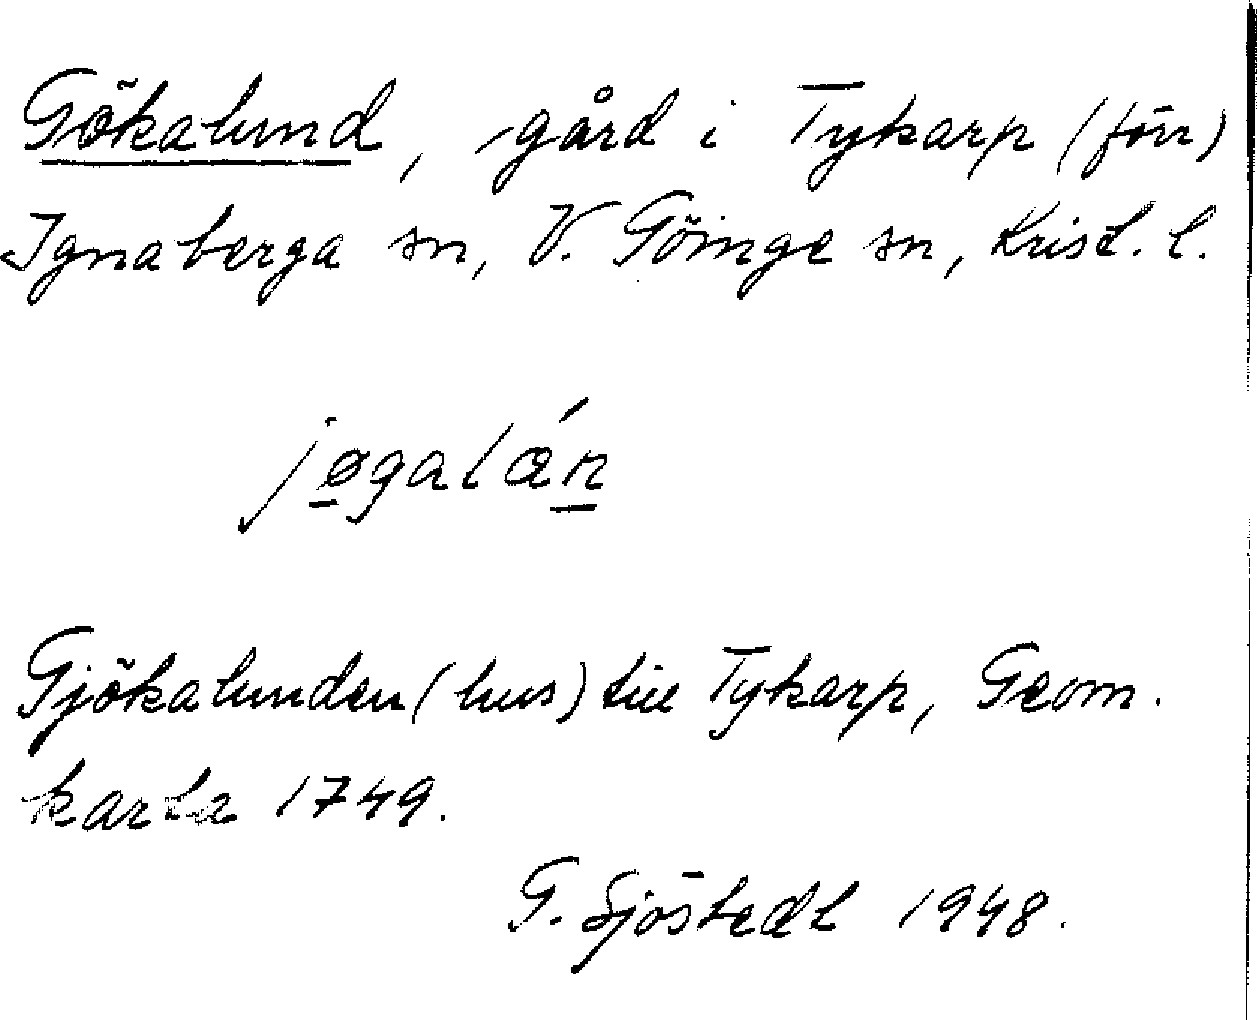 Gökalund, gård i Tykarp (förr)
Ignaberga sn, V. Göinge sn, Krist. l.
jøgalǽn
Gjökalunden (hus) till Tykarp, Geom.
karta 1749.
G. Sjöstedt 1948.